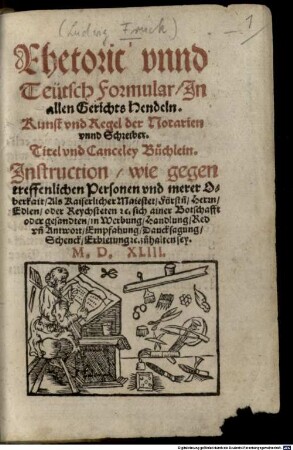 (Ludwig Fruck)
1
Rhetoric vnnd
Teütsch Formular/In
allen Gerichts Hendeln.
Kunst vnd Regel der Notarien
vnnd Schreiber.
Titel vnd Canceley Büchlein.
Instruction/wie gegen
treffenlichen Personen vnd merer O-
berkait/Als Kaiserlicher Maiestet/Fürstñ/Herrn/
Edlen/oder Reychsteten ꝛc. sich ainer Botschafft
oder gesandten/in Werbung/Handlung/Red
vñ Antwort/Empfahung/Dancksagung/
Schenck/Erbietung ꝛc. zůhalten sey.
M. D. XLIII.